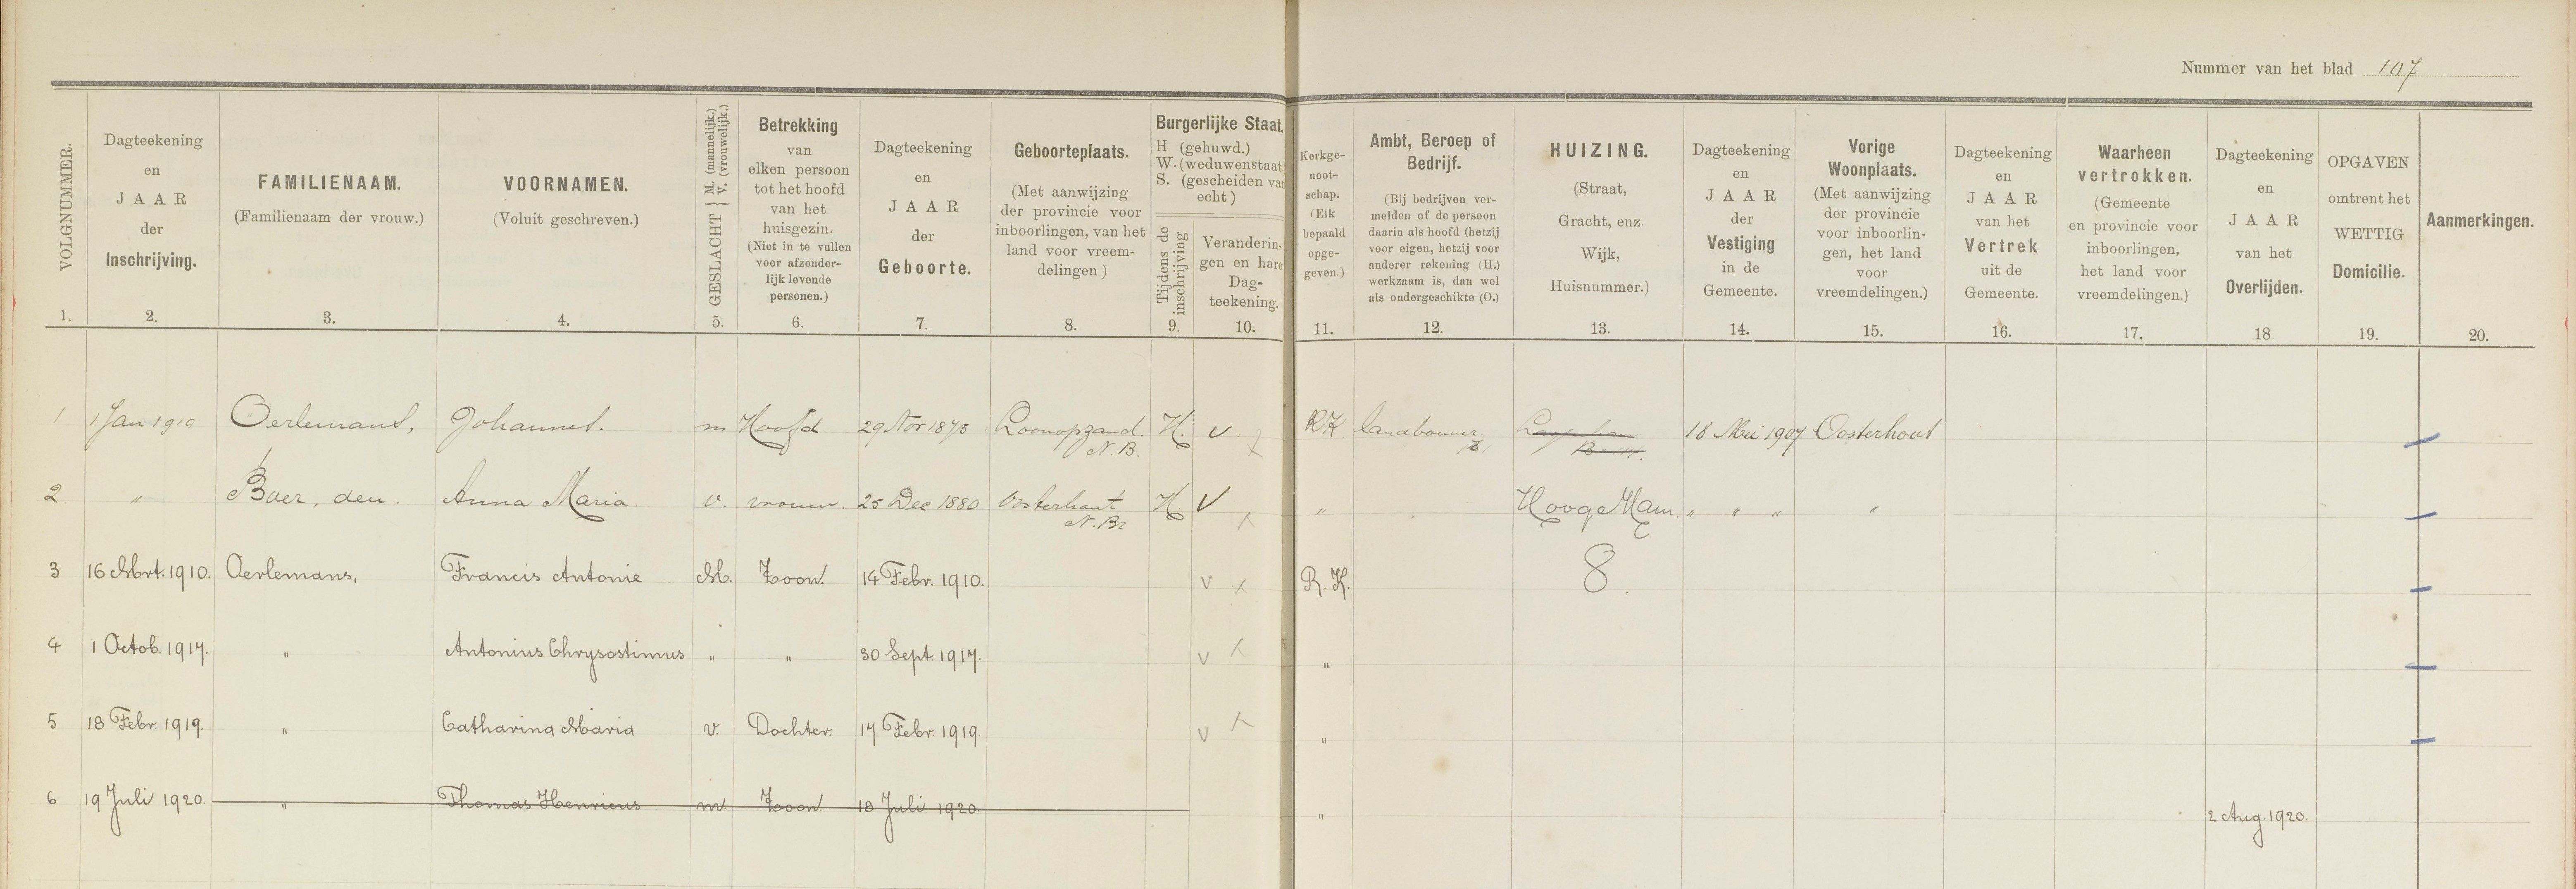 Nummer van het blad 107
VOLGNUMMER.
1.
Dagteekening
en
JAAR
der
Inschrijving.
2.
FAMILIENAAM.
(Familienaam der vrouw.)
3.
VOORNAMEN.
(Voluit geschreven.)
4.
GESLACHT { M. (mannelijk.)
V. (vrouwelijk.)
5.
Betrekking
van
elken persoon
tot het hoofd
van het
huisgezin.
(Niet in te vullen
voor afzonder-
lijk levende
personen.)
6.
Dagteekening
en
JAAR
der
Geboorte.
7.
Geboorteplaats.
(Met aanwijzing
der provincie voor
inboorlingen, van het
land voor vreem-
delingen)
8.
Burgerlijke Staat.
H (gehuwd.)
W. (weduwenstaat
S. (gescheiden van
echt)
Tijdens de
inschrijving
9.
Veranderin-
gen en hare
Dag-
teekening.
10.
Kerkge-
noot-
schap.
(Elk
bepaald
opge-
geven)
11.
Ambt, Beroep of
Bedrijf.
(Bij bedrijven ver-
melden of de persoon
daarin als hoofd (hetzij
voor eigen, hetzij voor
anderer rekening (H.)
werkzaam is, dan wel
als ondergeschikte (O.)
12.
HUIZING.
(Straat,
Gracht, enz.
Wijk,
Huisnummer.)
13.
Dagteekening
en
JAAR
der
Vestiging
in de
Gemeente.
14.
Vorige
Woonplaats.
(Met aanwijzing
der provincie
voor inboorlin-
gen, het land
voor
vreemdelingen.)
15.
Dagteekening
en
JAAR
van het
Vertrek
uit de
Gemeente.
16.
Waarheen
vertrokken.
(Gemeente
en provincie voor
inboorlingen,
het land voor
vreemdelingen.)
17.
Dagteekening
en
JAAR
van het
Overlijden.
18
OPGAVEN
omtrent het
WETTIG
Domicilie.
19.
Aanmerkingen.
20.
1 1 Jan 1910 Oerlemans, Johannes. m Hoofd 29 Nov 1875 Loonopzand. H. v. RK landbouwer 18 Mei 1907 Oosterhout
N.B.
2 " Boer, den. Anna Maria v. vrouw. 25 Dec 1880 Oosterhout H. V " Hooge Ham " " " "
N. Br
3 16 Mrt. 1910. Oerlemans, Francis Antonie M. Zoon. 14 Febr. 1910. v x R. K. 8.
4 1 Octob. 1917. " Antonius Chrysostimus " " 30 Sept. 1917. v x "
5 18 Febr. 1919. " Catharina Maria v. Dochter. 17 Febr. 1919. v x "
6 19 Juli 1920. " Thomas Henricus m. Zoon. 18 Juli 1920. " 2 Aug. 1920.